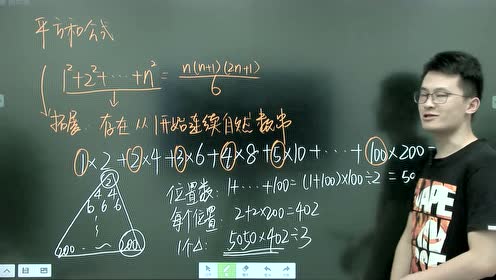 平方和公式
1²+2²+⋯+n²=n(n+1)(2n+1)/6
拓展: 存在从1开始连续自然数串
1×2+2×4+3×6+4×8+5×10+⋯+100×200=
位置数: 1+⋯+100=(1+100)×100÷2=50
每个位置: 2+2×200=402
1个△: 5050×402÷3
2
4 4
6 6 6
200 ⋯ 200